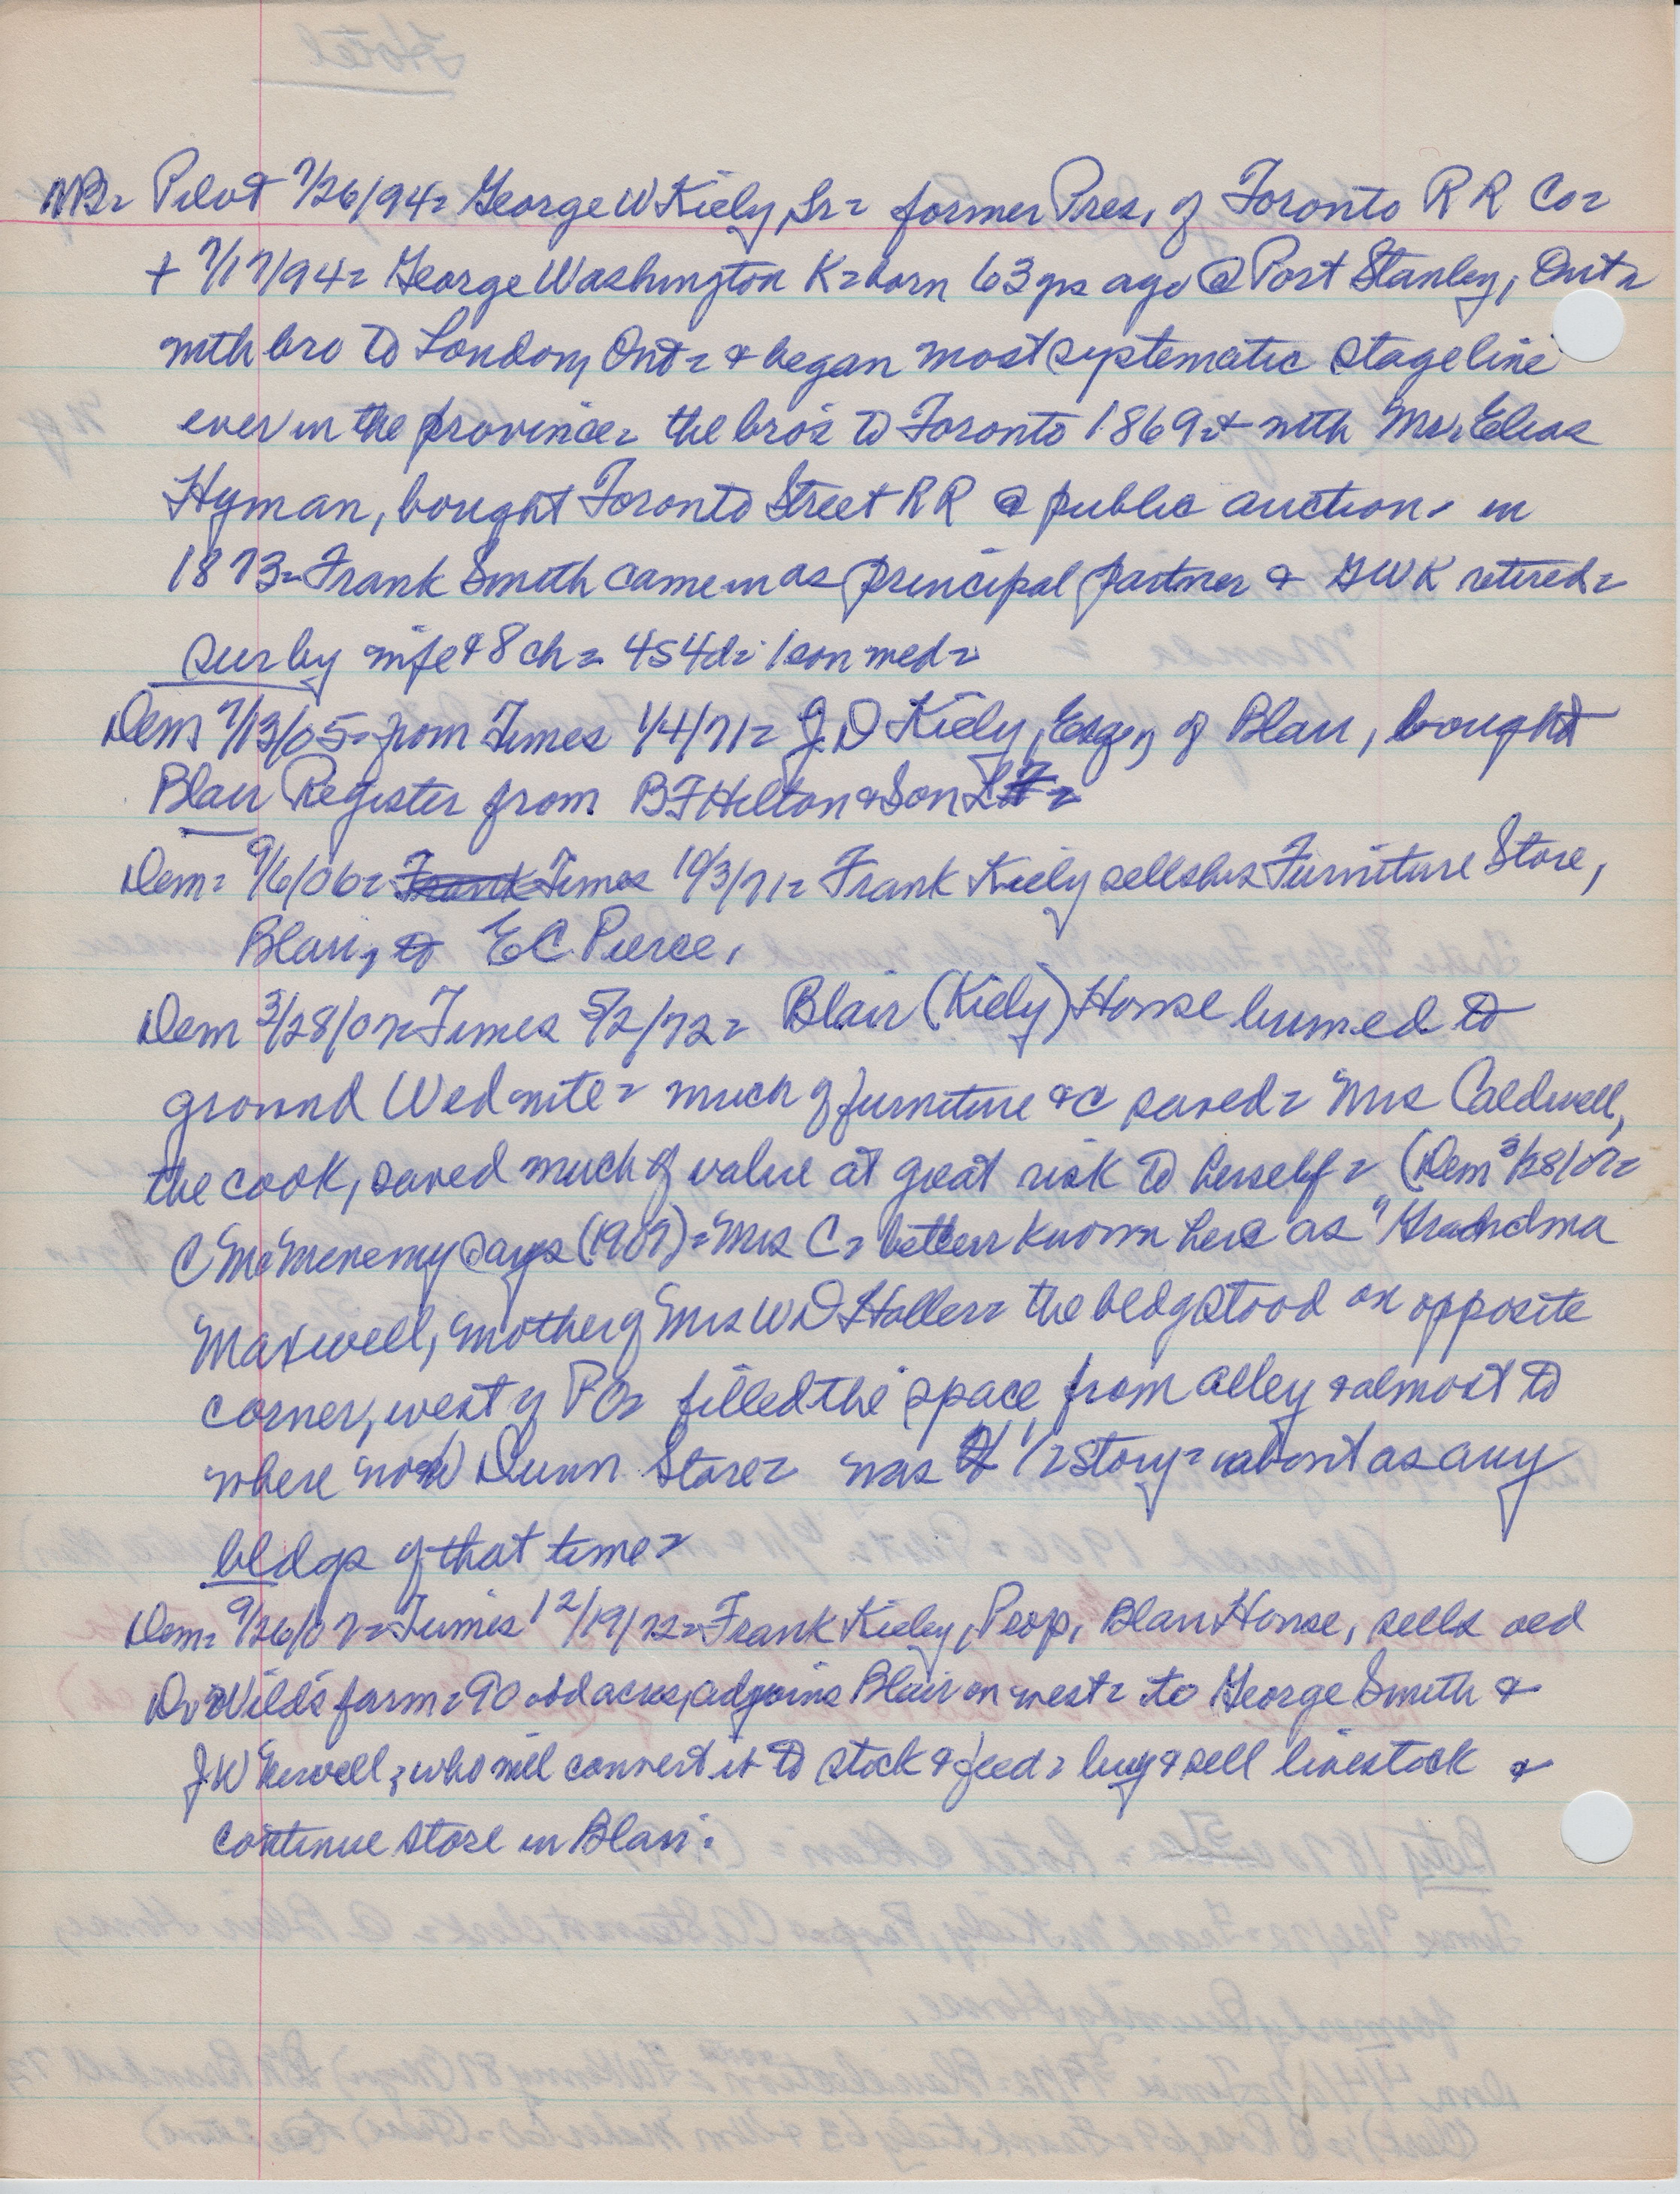 NB= Pilot 7/26/94= George W Kiely, Sr= former Pres, of Toronto R R Co=
+ 7/17/94= George Washington K= born 63 yrs ago @ Port Stanley, Ont=
with bro to London, Ont= & began most systematic stage line
ever in the province= the bro's to Toronto 1869= & with Mr Elias
Hyman, bought Toronto Street R R @ public auction- in
1873= Frank Smith came in as principal partner & GWK retired=
sur by wife & 8 ch= 4s 4d= 1 son med=
Dem 7/13/05= from Times 1/4/71= J.D Kiely, Esq, of Blair, bought
Blair Register from B F Hilton & Son
Dem= 9/6/06= Frank Times 10/3/71= Frank Kiely sells his Furniture Store,
Blair, to E C. Pierce.
Dem 3/28/07= Times 5/2/72= Blair (Kiely) House burned to
ground Wed nite= much of furniture &c saved= Mrs Caldwell,
the cook, saved much of value at great risk to herself= (Dem 3/28/07=
C McMenemy says (1907)= Mrs C= better known here as "Grandma
Maxwell, mother of Mrs W D Haller= the bldg stood on opposite
corner, west of P O= filled the space from alley & almost to
where now Dunn Store= was 1 1/2 story= about as any
bldgs of that time=
Dem= 9/26/07= Times 12/19/72= Frank Kiely, Prop, Blair House, sells old
Dr Wild's farm= 90 odd acres, adjoins Blair on west= to George Smith &
J.W Newell, who will convert it to stock & feed= buy & sell livestock &
continue store in Blair.